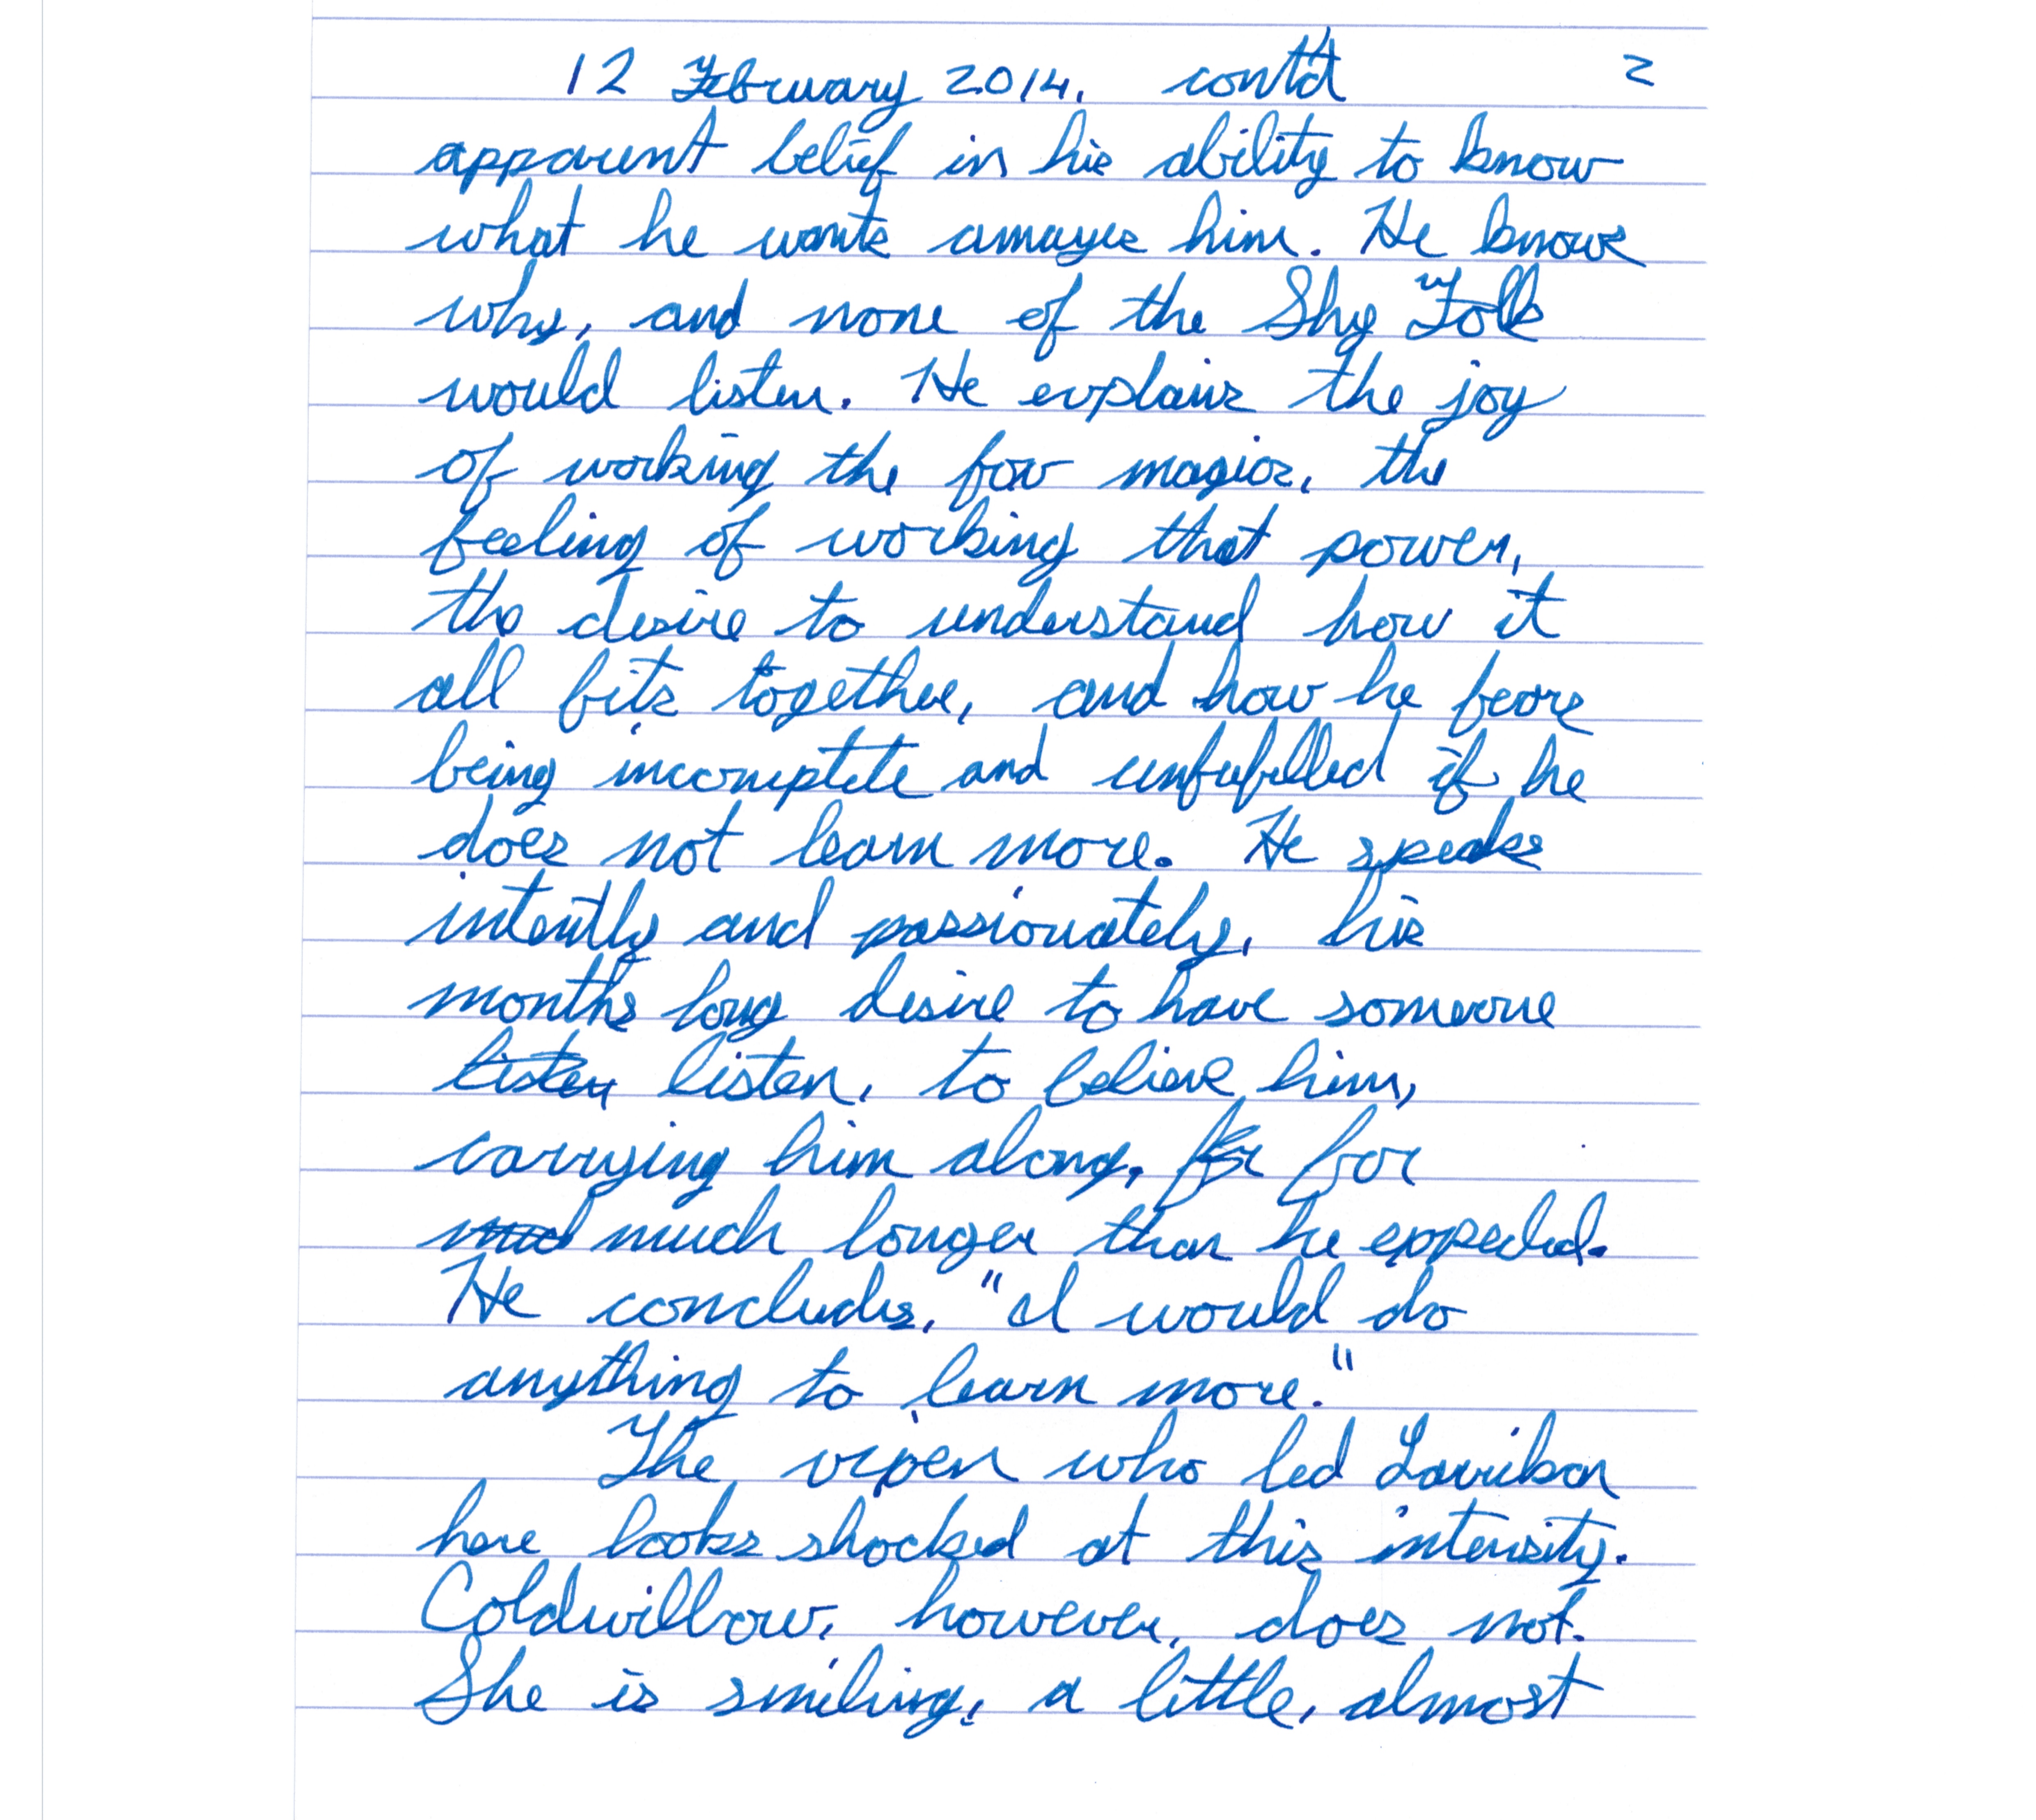 12 February 2014. cont'd 2
apparent belief in his ability to know
what he wants amazes him. He knows
why, and none of the Shy Folk
would listen. He explains the joy
of working the fox magics, the
feeling of working that power,
the desire to understand how it
all fits together, and how he fears
being incomplete and unfufilled if he
does not learn more. He speaks
intently and passionately, his
months long desire to have someone
listen listen, to believe him,
carrying him along, for for
much longer than he expected.
He concludes, "I would do
anything to learn more."
The vixen who led Lavikor
here looks shocked at this intensity.
Coldwillow, however, does not.
She is smiling, a little, almost